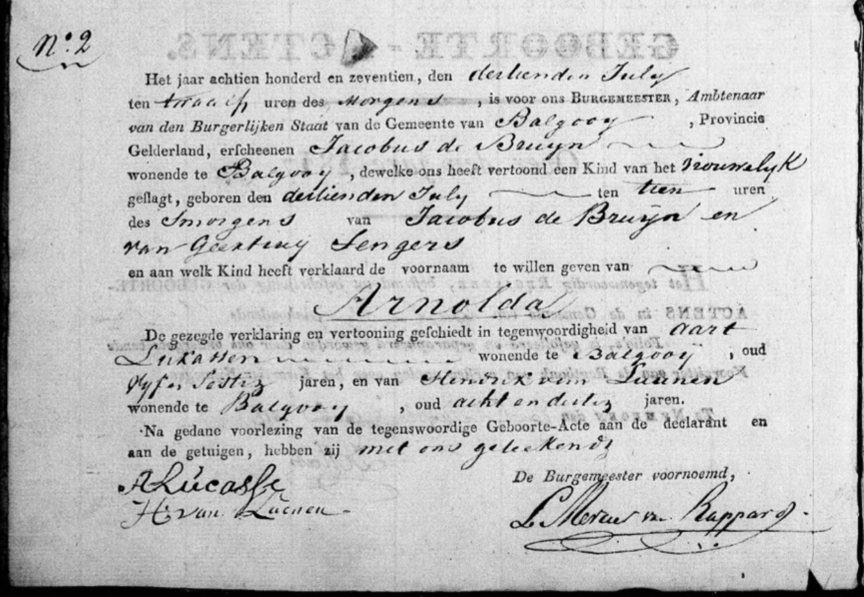 No. 2
GEBOORTE-ACTENS.
Het jaar achtien honderd en zeventien, den dertienden July
ten twaalf uren des morgens, is voor ons BURGEMEESTER, Ambtenaar
van den Burgerlijken Staat van de Gemeente van Balgooy, Provincie
Gelderland, erscheenen Jacobus de Bruijn
wonende te Balgooy, dewelke ons heeft vertoond een Kind van het vrouwelyk
geslagt, geboren den dertienden July ten tien uren
des Smorgens van Jacobus de Bruijn en
van Geertruy Sengers
en aan welk Kind heeft verklaard de voornaam te willen geven van
Arnolda
De gezegde verklaring en vertooning geschiedt in tegenwoordigheid van Aart
Lukassen wonende te Balgooÿ, oud
Vyf en Sestig jaren, en van Hendrik van Luenen
wonende te Balgooy, oud acht en dertig jaren.
Na gedane voorlezing van de tegenswoordige Geboorte-Acte aan de declarant en
aan de getuigen, hebben zij met ons geteekend
De Burgemeester voornoemd,
A Lucasse
H. van Luenen
van Rappard